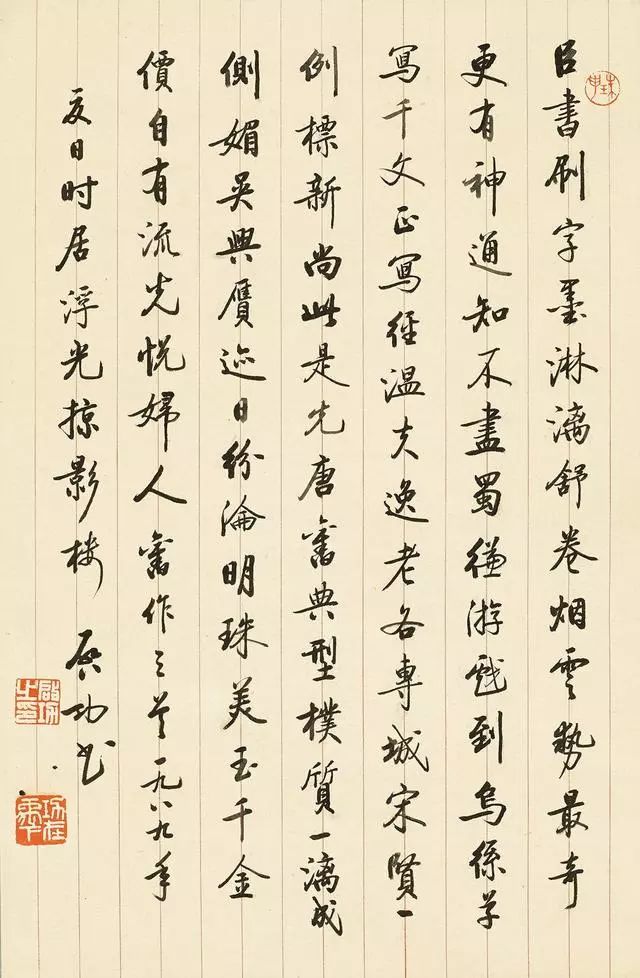 臣書刷字墨淋漓舒卷烟雲勢最奇
更有神通知不盡蜀縑游戲到烏絲草
寫千文正寫經温夫逸老各專城宋賢一
例標新尚此是先唐舊典型樸質一漓成
側媚吴興贗迹日紛淪明珠美玉千金
價自有流光悦婦人舊作三首一九八九年
夏日时居浮光掠影楼 启功书
珠申
啟功之印
功在禹下